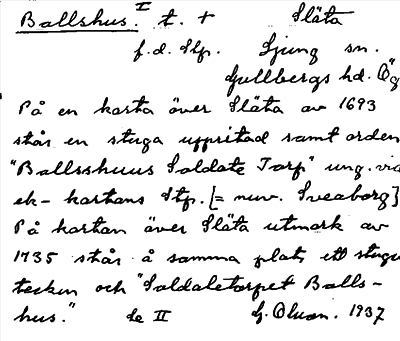 Ballshus. I t. + Släta
f.d. Stp. Ljung sn.
Gullbergs hd. Ög
På en karta över Släta av 1693
står en stuga uppritad samt orden
"Ballsshuus Soldate Torp" ung. vid
ek-kartans Stp. [= nuv. Sveaborg]
På kartan över Släta utmark av
1735 står å samma plats ett stuge
tecken och "Soldatetorpet Balls-
hus." Se II G. Olson. 1937